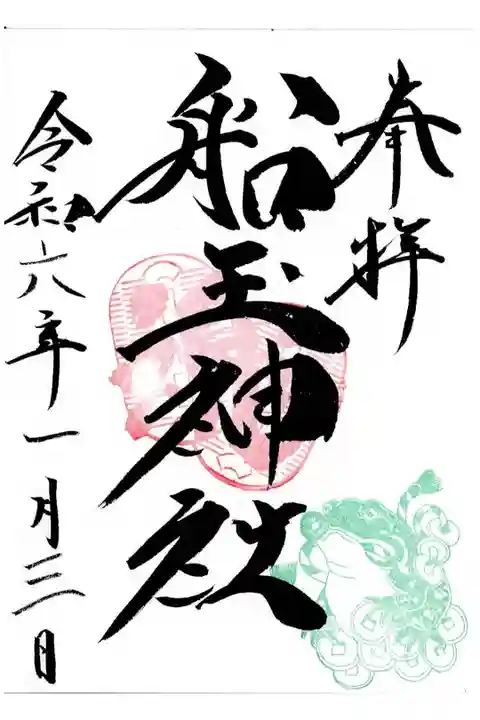 奉拝
船玉神社
令和六年一月三日